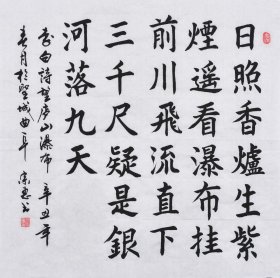 日照香爐生紫
煙遥看瀑布挂
前川飛流直下
三千尺疑是銀
河落九天
李白詩望庐山瀑布 辛丑年
春月於聖城曲阜